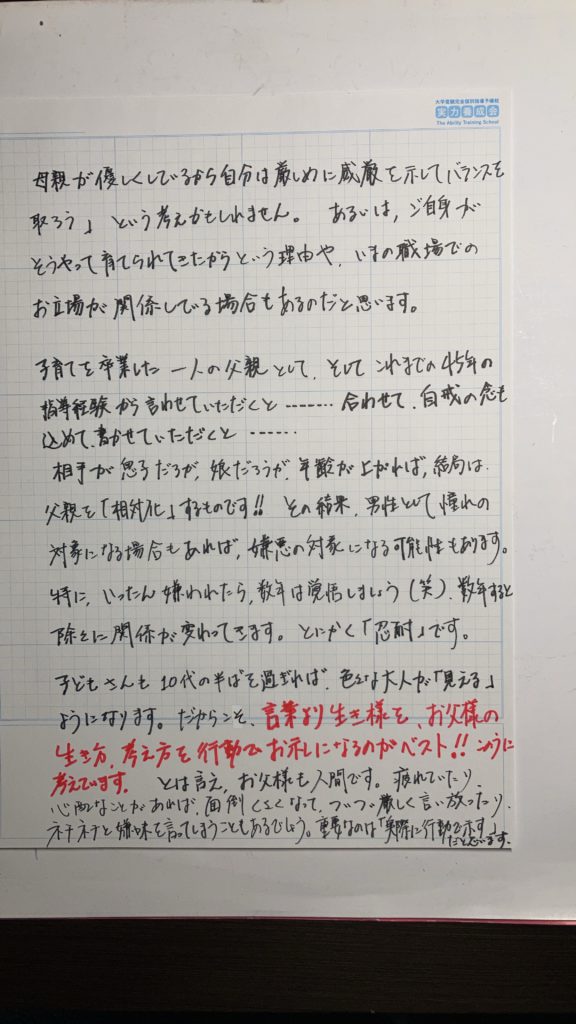 大学受験完全個別指導予備校
実力養成会
The Ability Training School
母親が優しくしているから自分は厳しめに威厳を示してバランスを
取ろう」という考えかもしれません。 あるいは、ご自身が
そうやって育てられてきたからという理由や、いまの職場での
お立場が関係している場合もあるのだと思います。
子育てを卒業した一人の父親として、そしてこれまでの45年の
指導経験から言わせていただくと……… 合わせて、自戒の念も
込めて、書かせていただくと ……
相手が息子だろが、娘だろうが、年齢が上がれば、結局は、
父親を「相対化」するものです!! その結果、男性として憧れの
対象になる場合もあれば、嫌悪の対象になる可能性もあります。
特に、いったん嫌われたら、数年は覚悟しましょう(笑)、数年すると
除々に関係が変わってきます。とにかく「忍耐」です。
子どもさんも10代の半ばを過ぎれば、色々な大人が「見える」
ようになります。だからこそ、言葉より生き様を、お父様の
生き方、考え方を行動でお示しになるのがベスト!! このように
考えています。 とは言え、お父様も人間です。疲れていたり、
心配なことがあれば、面倒くさくなって、ついつい厳しく言い放ったり、
ネチネチと嫌味を言ってしまうこともあるでしょう。重要なのは「実際に行動で示す」
だと思います。